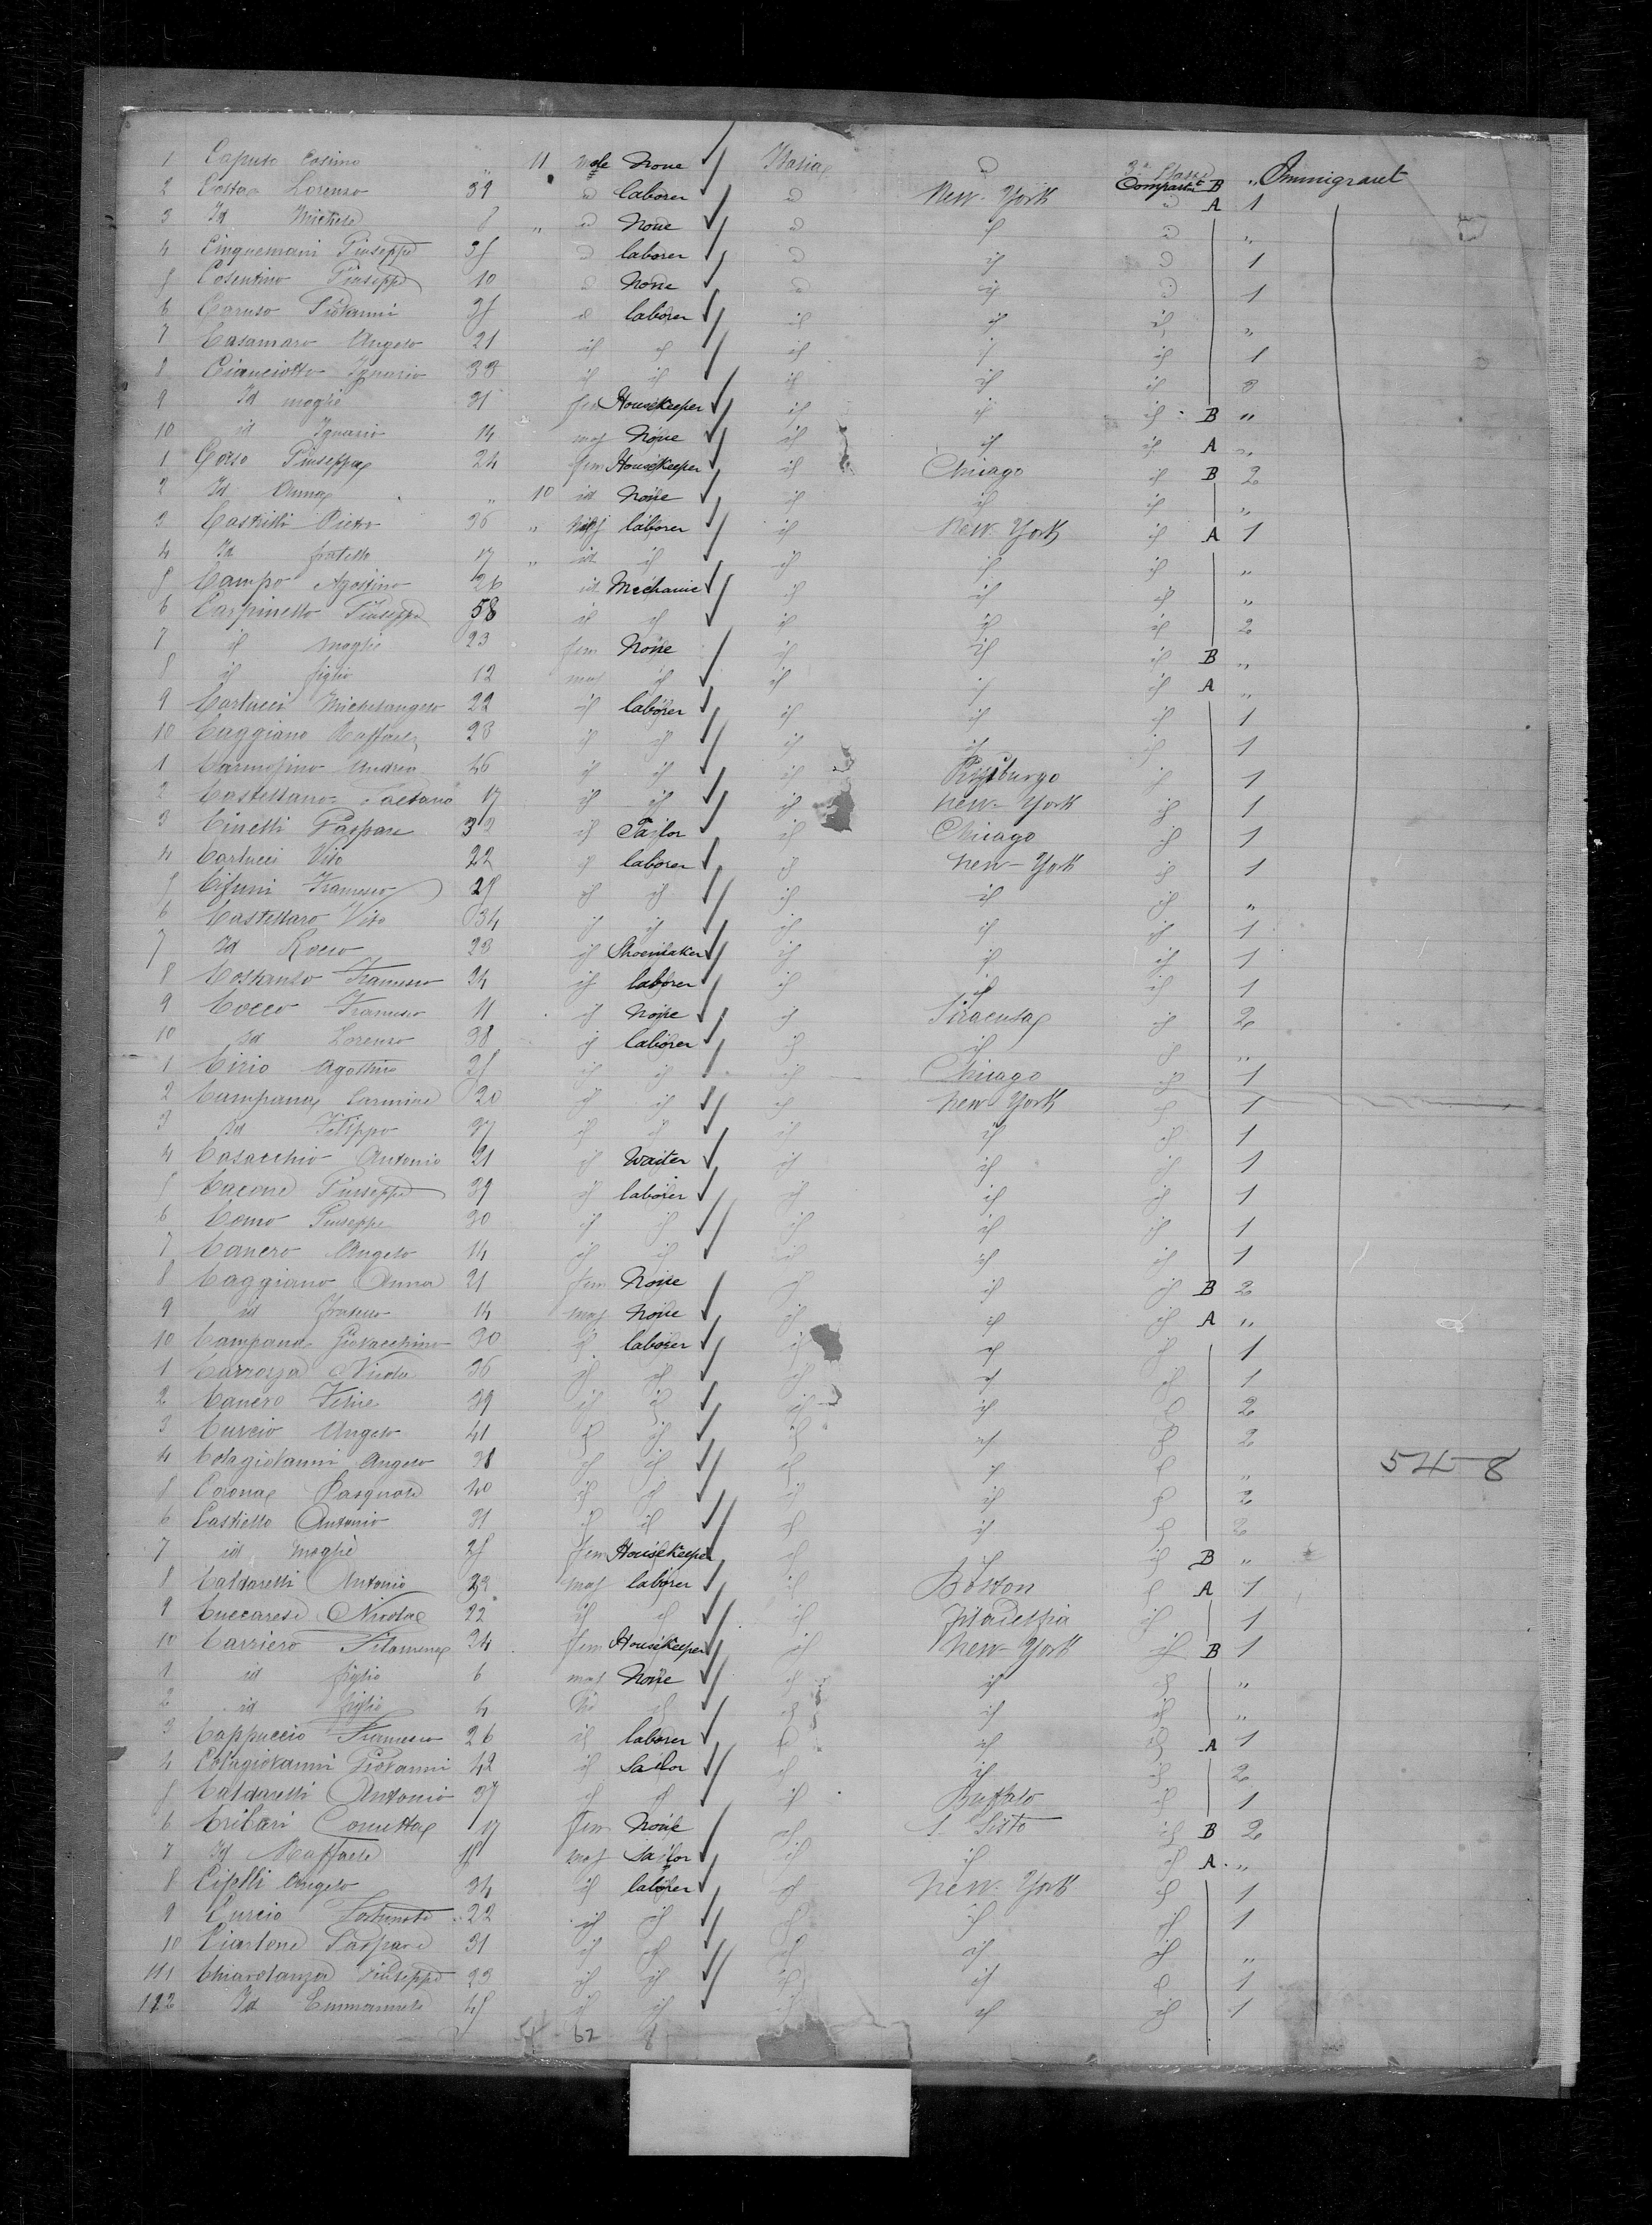 1 Capuso Cosimo " 11 male None Italia " 3ª Classe Compartmt B " Immigrant
2 Costa Lorenzo 39 " laborer " New-York " A 1
3 Id Michele 8 " " None " id " "
4 Cinquemani Giuseppe 35 " laborer " id " 1
5 Cosentino Giuseppe 10 " None " id " 1
6 Caruso Giovanni 35 id laborer id id id "
7 Casamaro Angelo 21 id id id id id 1
8 Cianciotto Ignazio 38 id id id id id 3
9 Id moglie 31 fem Housekeeper id id id B "
10 id Ignazio 14 mas None id id id A "
1 Corso Giuseppa 24 fem Housekeeper id Chicago id B 2
2 Id Anna " 10 id None id id id "
3 Castrilli Pietro 36 " mas laborer id New-York id A 1
4 Id fratello 17 " id id id id id "
5 Campo Agostino 26 id Mechanic id id id "
6 Carpinello Giuseppe 58 id id id id id 2
7 id moglie 23 fem None id id id B "
8 id figlio 12 mas id id id id A "
9 Carlucci Michelangelo 22 id laborer id id id 1
10 Caggiano Raffaele 23 id id id id id 1
1 Carmosino Andrea 46 id id id Pittsburgo id 1
2 Castellano Gaetano 17 id id id New-York id 1
3 Cinelli Gaspare 32 id Tailor id Chicago id 1
4 Carlucci Vito 22 id laborer id New-York id 1
5 Cifuni Francesco 25 id id id id id "
6 Castellaro Vito 34 id id id id id 1
7 Id Rocco 23 id Shoemaker id id id 1
8 Costanzo Francesco 34 id laborer id id id 1
9 Cocco Francesco 11 id None id Siracusa id 2
10 id Lorenzo 38 id laborer id id id "
1 Cirio Agostino 25 id id id Chicago id 1
2 Campana Carmine 20 id id id New-York id 1
3 id Filippo 37 id id id id 1
4 Casacchio Antonio 21 id Waiter id id id 1
5 Cacone Giuseppe 39 id laborer id id id 1
6 Como Giuseppe 30 id id id id id 1
7 Canero Angelo 14 id id id id id 1
8 Caggiano Anna 21 fem None id id id B 2
9 id fratello 14 mas None id id id A "
10 Campana Giovacchino 30 id laborer id id id 1
1 Carrozza Nicola 36 id id id id id 1
2 Canero Felice 39 id id id id id 2
3 Curcio Angelo 41 id id id id id 2
4 Colagiovanni Angelo 38 id id id id id "
5 Corona Pasquale 40 id id id id id 2
6 Castiello Antonio 31 id id id id id 2
7 id moglie 25 fem Housekeeper id id id B "
8 Caldarelli Antonio 32 mas laborer id Boston id A 1
9 Cuccarese Nicola 22 id id id Filadelfia id 1
10 Carriero Filomena 24 fem Housekeeper id New-York id B 1
1 id figlio 6 mas None id id id "
2 id figlio 4 id id id id "
3 Cappuccio Francesco 26 id laborer id id id A 1
4 Colagiovanni Giovanni 42 id Sailor id id id 2
5 Caldarelli Antonio 37 id id id Buffalo id 1
6 Cribari Concetta 17 fem None id S. Sisto id B 2
7 Id Raffaele mas Sailor id id id A "
8 Cifelli Angelo 34 id laborer id New-York id 1
9 Curcio Fortunato 22 id id id id id 1
10 Ciarlone Gaspare 31 id id id id id "
111 Chiarolanza Giuseppe 23 id id id id id 1
112 Id Emmanuele 45 id id id id id 1
62
54-8